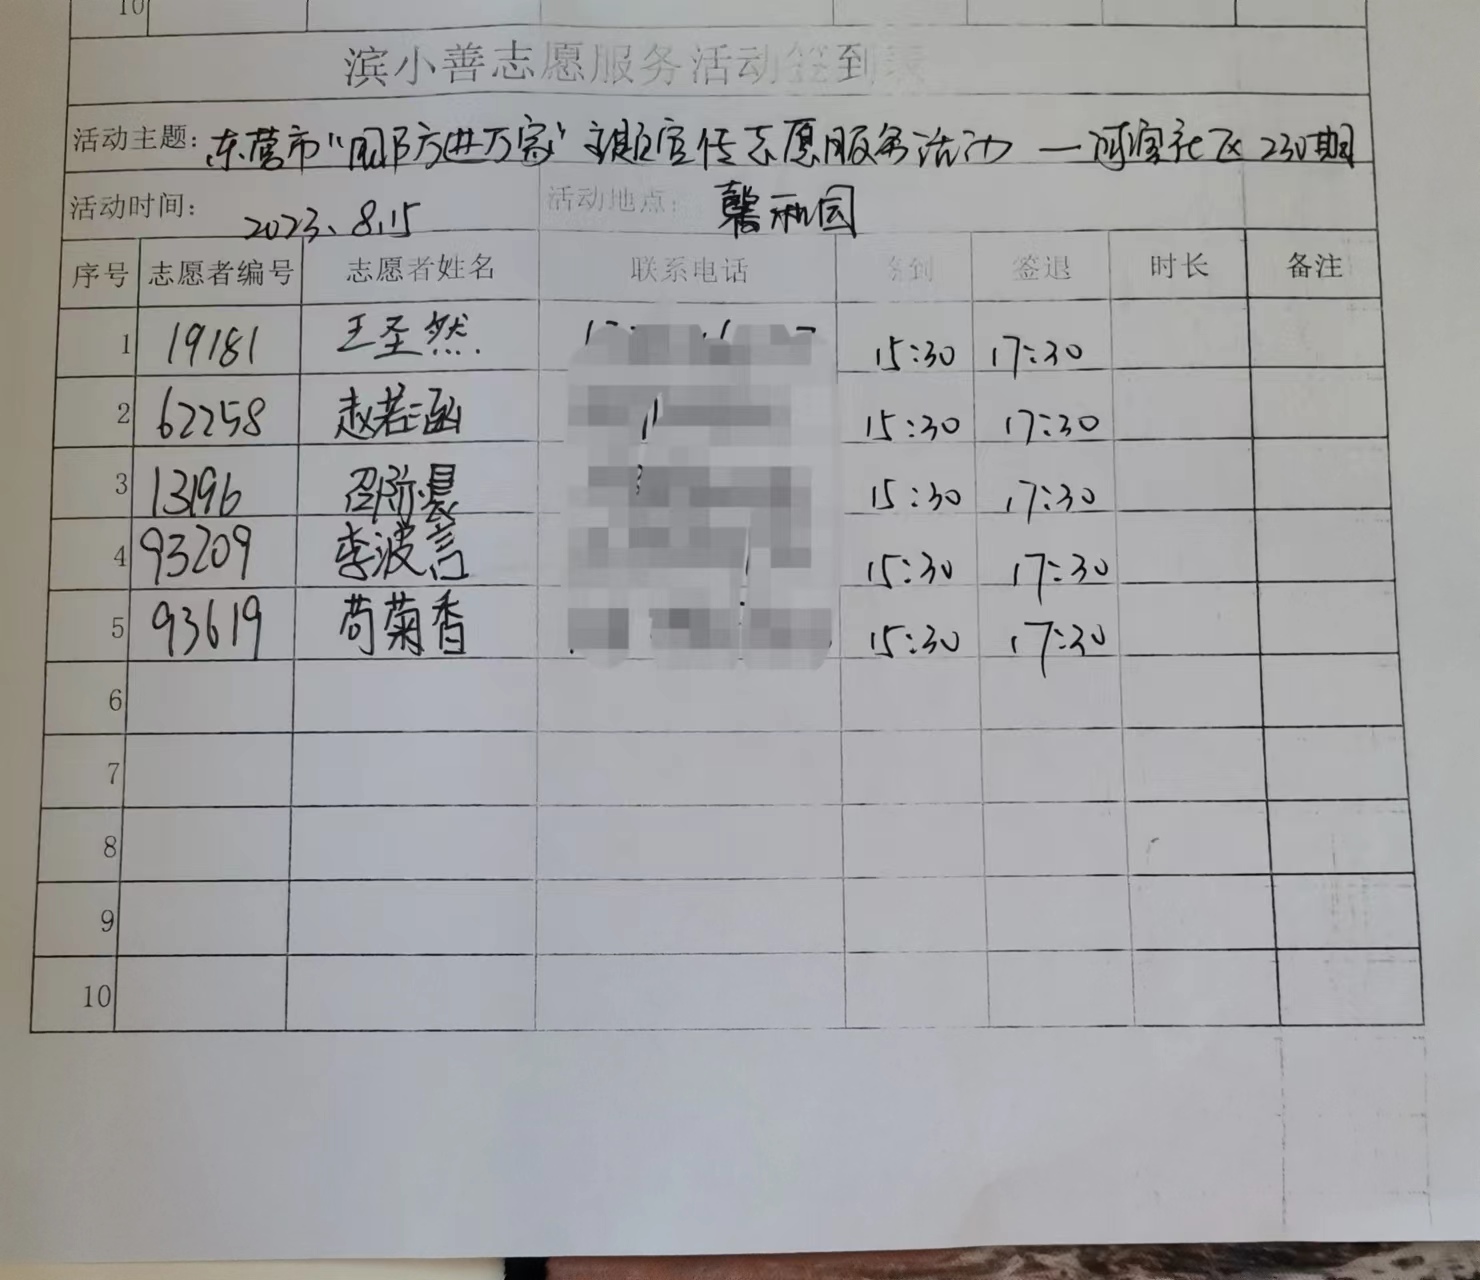 10
滨小善志愿服务活动签到表
活动主题: 东营市"国防进万家"主题宣传志愿服务活动 — 河滨社区 230期
活动时间: 2023.8.15 活动地点: 馨和园
序号 志愿者编号 志愿者姓名 联系电话 签到 签退 时长 备注
1 19181 王圣然 15:30 17:30
2 62258 赵若涵 15:30 17:30
3 13196 15:30 17:30
4 93209 李波 15:30 17:30
5 93619 苟菊香 15:30 17:30
6
7
8
9
10